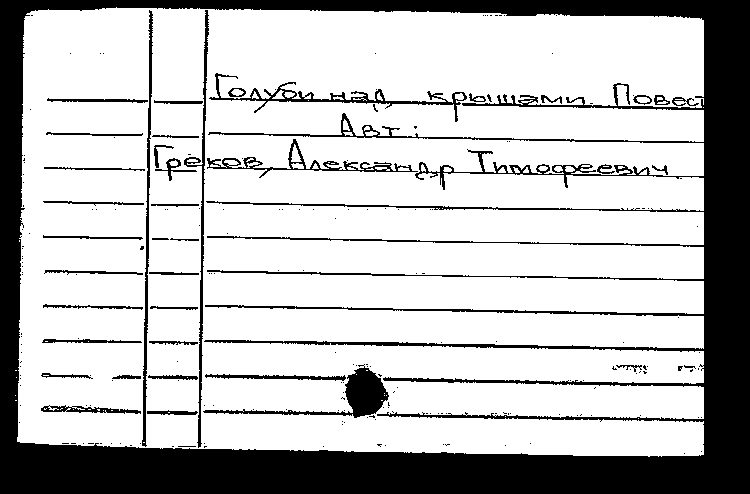 Голуби над крышами. Повест
Авт:
Греков, Александр Тимофеевич